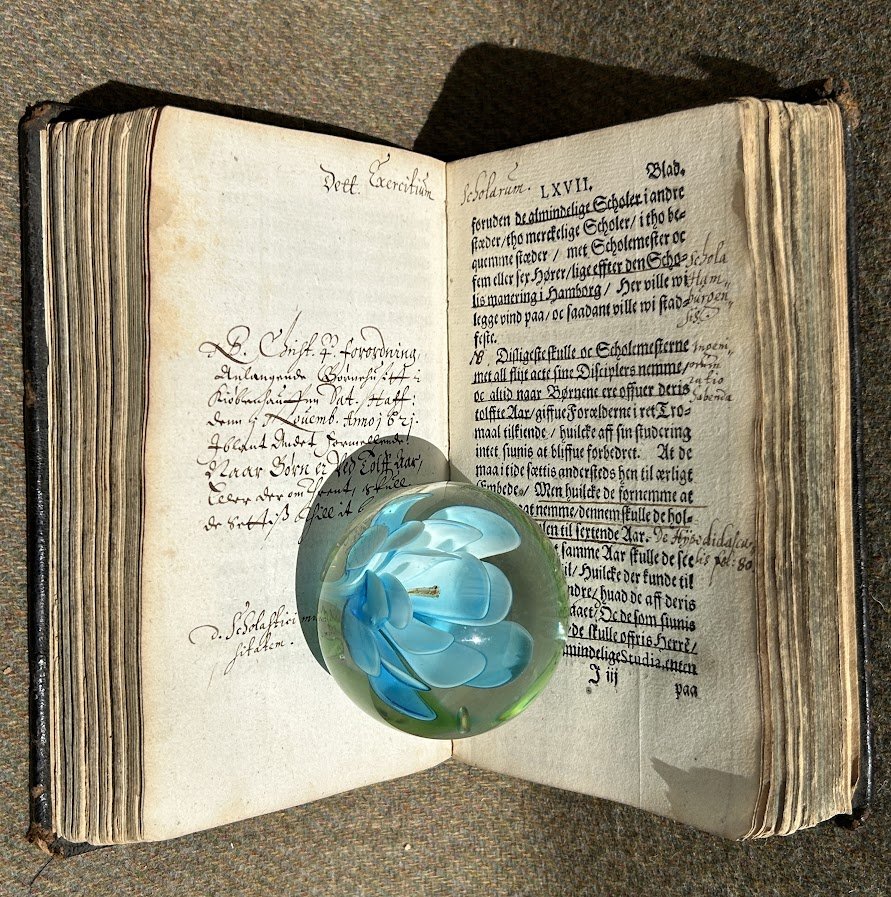 Dett. Exercitium
R. Christ. 4. forordning,
Anlangende Børnehuset i
Kiøbenhaffn Dat. Haff:
denn Nouemb. Anno 1621.
Iblant Andet formellende:
Naar Børn er ved Tolff Aar,
Eller der omtrent, skulle
de settis till it
D. Scholastici
sitatem.
Scholarum.
LXVII. Blad.
foruden de almindelige Scholer i andre
stæder / tho merckelige Scholer / i tho be-
quemme stæder / met Scholemester oc
fem eller sex Hører / lige effter den Scho-
lis manering i Hamborg / Her ville wi
legge vind paa / oc saadant ville wi stad-
feste.
Schola
Ham-
burgen-
sis.
Disligeste skulle oc Scholemesterne
met all flijt acte sine Disciplers nemme /
oc altid naar Børnene ere offuer deris
tolffte Aar / giffue Forælderne i ret Tro-
maal tilkiende / huilcke aff sin studering
intet siunis at bliffue forbedret. At de
maa i tide sættis andersteds hen til ærligt
Embede / Men huilcke de fornemme at
at nemme / dennem skulle de hol-
len til sextende Aar.
samme Aar skulle de see
il / Huilcke der kunde til
ndre / huad de aff deris
daet / Oc de som siunis
de skulle offris HErre /
mindelige Studia, enten
ingeni-
orum
ratio
habenda
De Hypodidasca-
lis pol: 80
J iij
paa